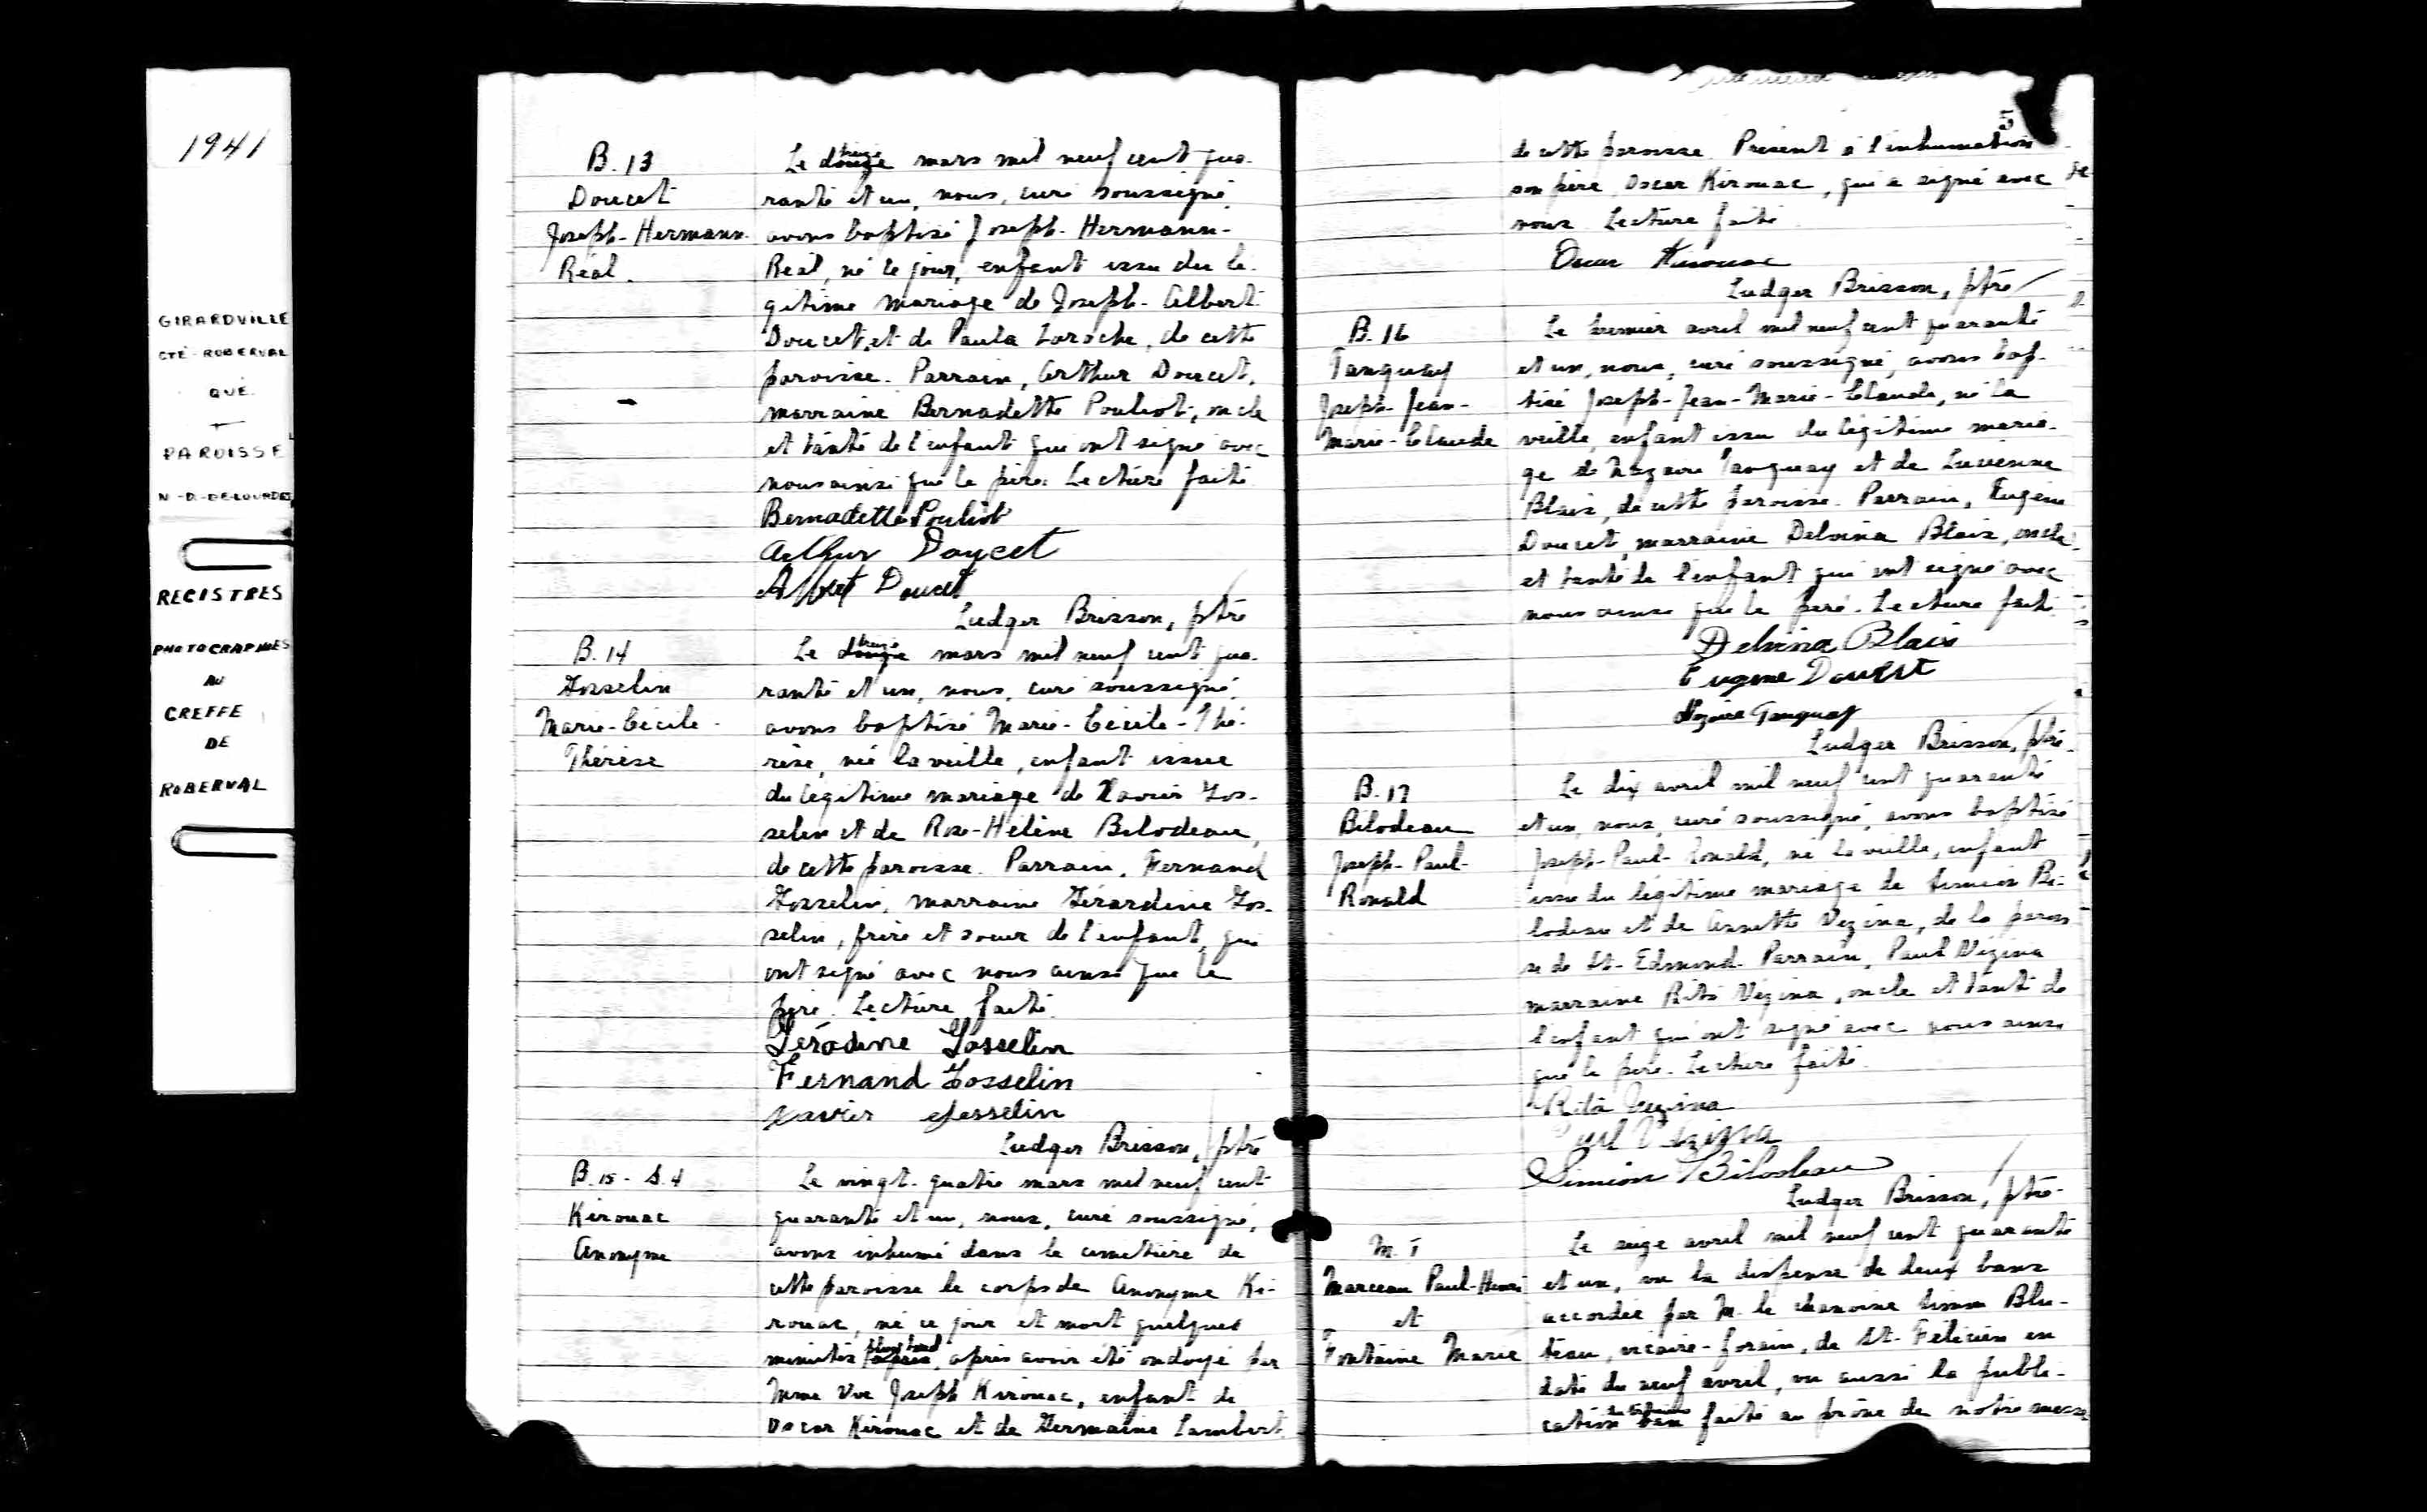 1941
GIRARDVILLE
CTÉ ROBERVAL
QUÉ.
PAROISSE
N.-D.-DE-LOURDES
REGISTRES
PHOTOGRAPHIÉS
AU
GREFFE
DE
ROBERVAL
B. 13
Doucet
Joseph-Hermann-
Réal.
treize
Le douze mars mil neuf cent qua-
rante et un, nous, curé soussigné,
avons baptisé Joseph-Hermann-
Réal, né ce jour, enfant issu du lé-
gitime mariage de Joseph-Albert
Doucet, et de Paula Laroche, de cette
paroisse. Parrain, Arthur Doucet,
marraine Bernadette Pouliot, oncle
et tante de l'enfant qui ont signé avec
nous ainsi que le père. Lecture faite.
Bernadette Pouliot
Arthur Doucet
Albert Doucet
Ludger Brisson, ptre
B. 14
Gosselin
Marie-Cécile-
Thérèse
treize
Le douze mars mil neuf cent qua-
rante et un, nous, curé soussigné,
avons baptisé Marie-Cécile-Thé-
rèse, née la veille, enfant issue
du légitime mariage de Xavier Gos-
selin et de Rose-Hélène Bilodeau,
de cette paroisse. Parrain, Fernand
Gosselin, marraine Gérardine Gos-
selin, frère et soeur de l'enfant, qui
ont signé avec nous ainsi que le
père. Lecture faite.
Gérardine Gosselin
Fernand Gosselin
Xavier Gosselin
Ludger Brisson, ptre
B. 15 - S. 4
Kirouac
Anonyme
Le vingt-quatre mars mil neuf cent
quarante et un, nous, curé soussigné,
avons inhumé dans le cimetière de
cette paroisse le corps de Anonyme Ki-
rouac, né ce jour et mort quelques
plus tard
minutes après, après avoir été ondoyé par
Mme Vve Joseph Kirouac, enfant de
Oscar Kirouac et de Germaine Lambert
5
de cette paroisse. Présent à l'inhumation
son père, Oscar Kirouac, qui a signé avec
nous. Lecture faite.
Oscar Kirouac
Ludger Brisson, ptre
B. 16
Tanguay
Joseph-Jean-
Marie-Claude
Le premier avril mil neuf cent quarante
et un, nous, curé soussigné, avons bap-
tisé Joseph-Jean-Marie-Claude, né la
veille, enfant issu du légitime maria-
ge de Nazaire Tanguay et de Lucienne
Blais, de cette paroisse. Parrain, Eugène
Doucet, marraine Delvina Blais, oncle
et tante de l'enfant qui ont signé avec
nous ainsi que le père. Lecture faite.
Delvina Blais
Eugène Doucet
Nazaire Tanguay
Ludger Brisson, ptre
B. 17
Bilodeau
Joseph-Paul-
Ronald
Le dix avril mil neuf cent quarante
et un, nous, curé soussigné, avons baptisé
Joseph-Paul-Ronald, né la veille, enfant
issu du légitime mariage de Siméon Bi-
lodeau et de Annette Vézina, de la parois
se de St-Edmond. Parrain, Paul Vézina
marraine Rita Vézina, oncle et tante de
l'enfant qui ont signé avec nous ainsi
que le père. Lecture faite.
Rita Vézina
Paul Vézina
Siméon Bilodeau
Ludger Brisson, ptre
M. 1
Marceau Paul-Henri
et
Fontaine Marie
Le seize avril mil neuf cent quarante
et un, vu la dispense de deux bans
accordée par M. le chanoine Simon Blu-
teau, vicaire-forain, de St-Félicien en
date du neuf avril, vu aussi la publi-
cation ban faite au prône de notre messe